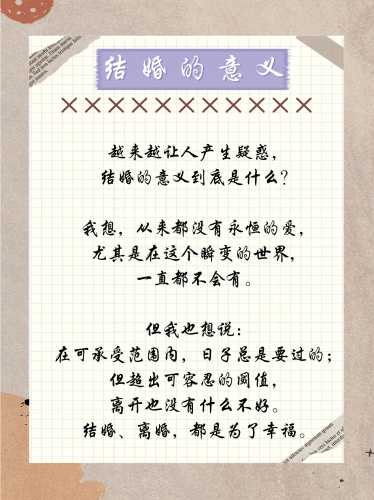 结婚的意义
越来越让人产生疑惑，
结婚的意义到底是什么？
我想，从来都没有永恒的爱，
尤其是在这个瞬变的世界，
一直都不会有。
但我也想说：
在可承受范围内，日子总是要过的；
但超出可容忍的阈值，
离开也没有什么不好。
结婚、离婚，都是为了幸福。